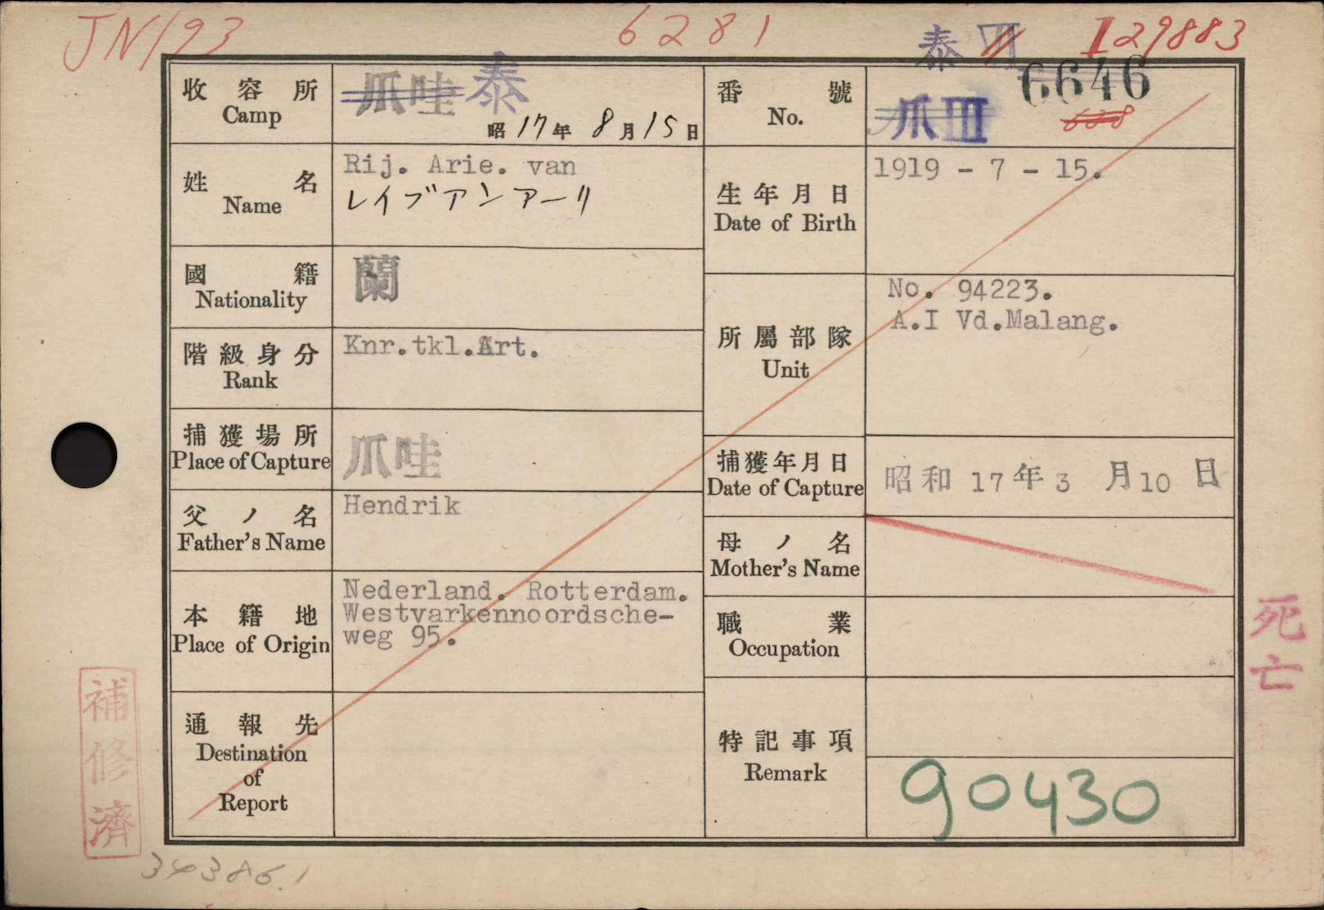 JN193
6281
泰 III
I 29883
收容所
Camp
爪哇 泰
昭17年 8月15日
番號
No.
6646
爪III
668
姓名
Name
Rij. Arie. van
レイブアンアーリ
生年月日
Date of Birth
1919 - 7 - 15.
國籍
Nationality
蘭
所屬部隊
Unit
No. 94223.
A.I Vd.Malang.
階級身分
Rank
Knr.tkl.Art.
捕獲場所
Place of Capture
爪哇
捕獲年月日
Date of Capture
昭和 17年3 月10 日
父ノ名
Father's Name
Hendrik
母ノ名
Mother's Name
本籍地
Place of Origin
Nederland. Rotterdam.
Westvarkennoordsche-
weg 95.
職業
Occupation
通報先
Destination
of
Report
特記事項
Remark
90430
死亡
補修濟
34386.1